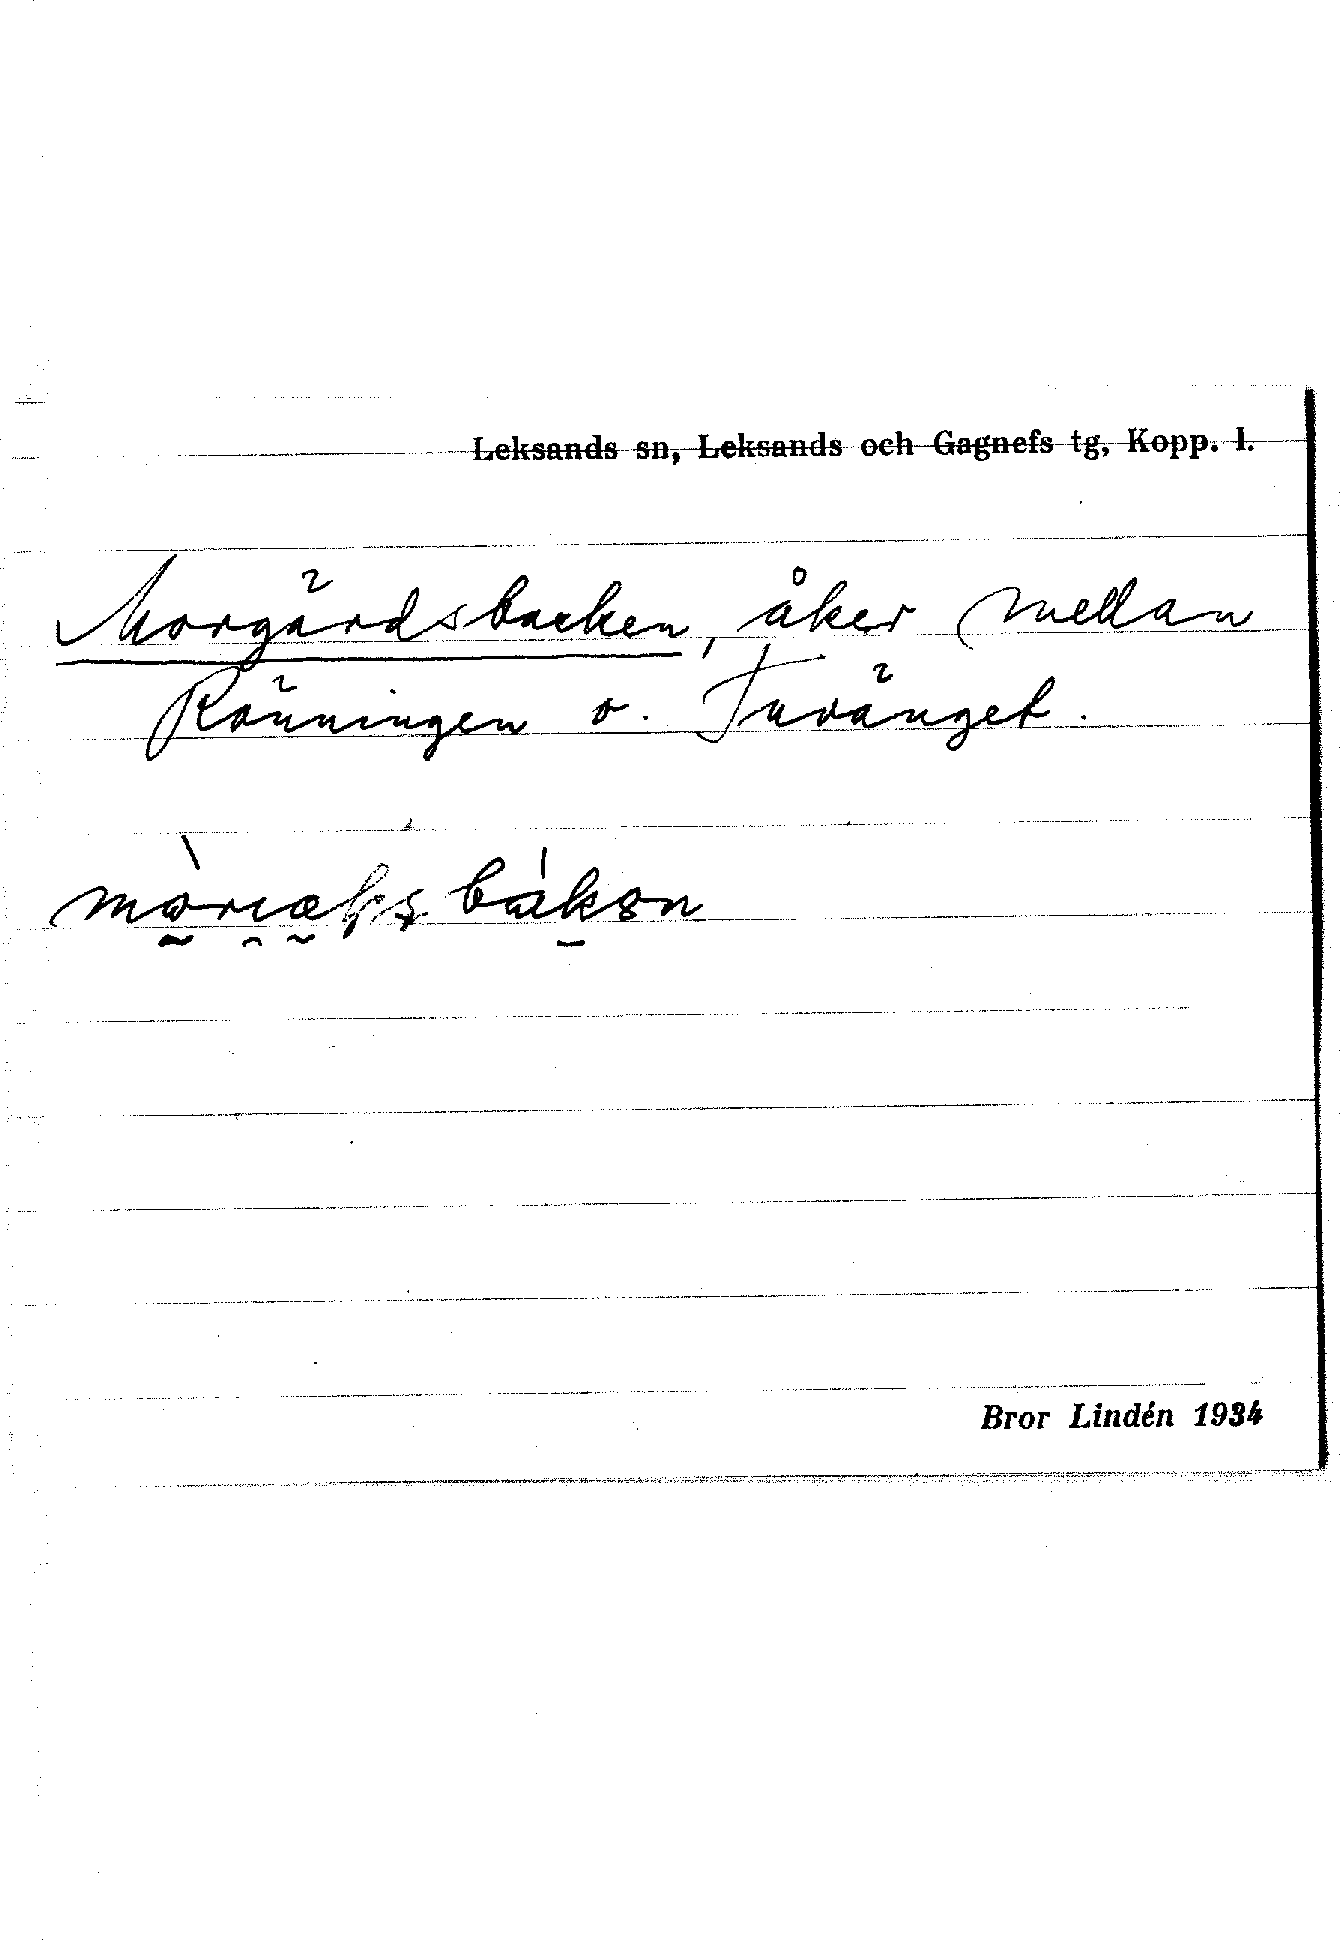 Leksands sn, Leksands och Gagnefs tg, Kopp. l.
Morgärdsbacken, åker mellan
Rönningen o. Tuvänget.
Bror Lindén 1934